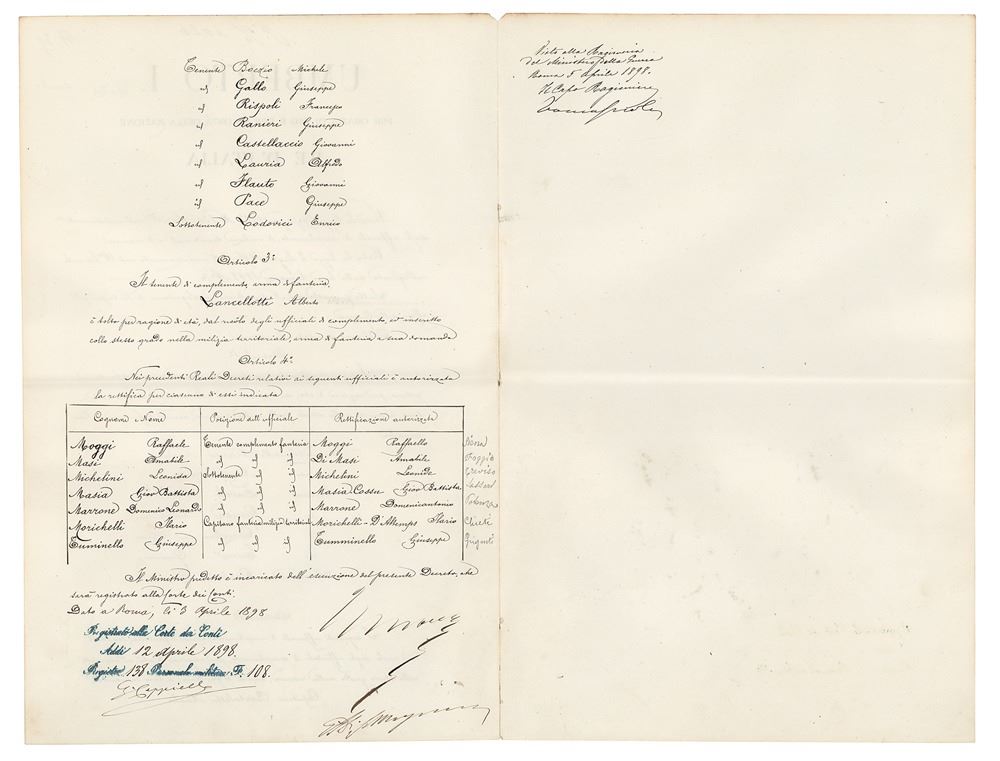 Tenente Boezio Michele
id Gallo Giuseppe
id Rispoli Francesco
id Ranieri Giuseppe
id Castellaccio Giovanni
id Lauria Alfredo
id Flauto Giovanni
id Pace Giuseppe
Sottotenente Lodovici Enrico
Articolo 3º
Il tenente di complemento, arma di fanteria,
Lancellotti Alberto
è tolto per ragione di età, dal ruolo degli ufficiali di complemento, ed inscritto
collo stesso grado nella milizia territoriale, arma di fanteria a sua domanda
Articolo 4º
Nei precedenti Reali Decreti relativi ai seguenti ufficiali è autorizzata
la rettifica per ciascuno di essi indicata
Cognome e Nome Posizione dell'ufficiale Rettificazione autorizzata
Moggi Raffaele Tenente complemento fanteria Moggi Raffaello Siena
Masi Amabile id id id Di Masi Amabile Foggia
Michelini Leonida Sottotenente id id Michelini Leonide Treviso
Masia Giov Battista id id id Masia Cossu Giov Battista Sassari
Marrone Domenico Leonardo id id id Marrone Domenicantonio Potenza
Morichelli Ilario Capitano fanteria milizia territoriale Morichelli-D'Altemps Ilario Chieti
Tuminello Giuseppe id id id Tumminello Giuseppe Girgenti
Il Ministro predetto è incaricato dell'esecuzione del presente Decreto, che
sarà registrato alla Corte dei Conti.
Dato a Roma, li 3 Aprile 1898
Registrato alla Corte dei Conti
Addì 12 aprile 1898.
Registro 138 Personale militare F. 108.
Visto alla Ragioneria
del Ministero della Guerra
Roma 5 aprile 1898.
Il Capo Ragioniere